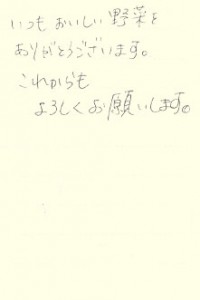 いつもおいしい野菜を
ありがとうございます。
これからも
よろしくお願いします。